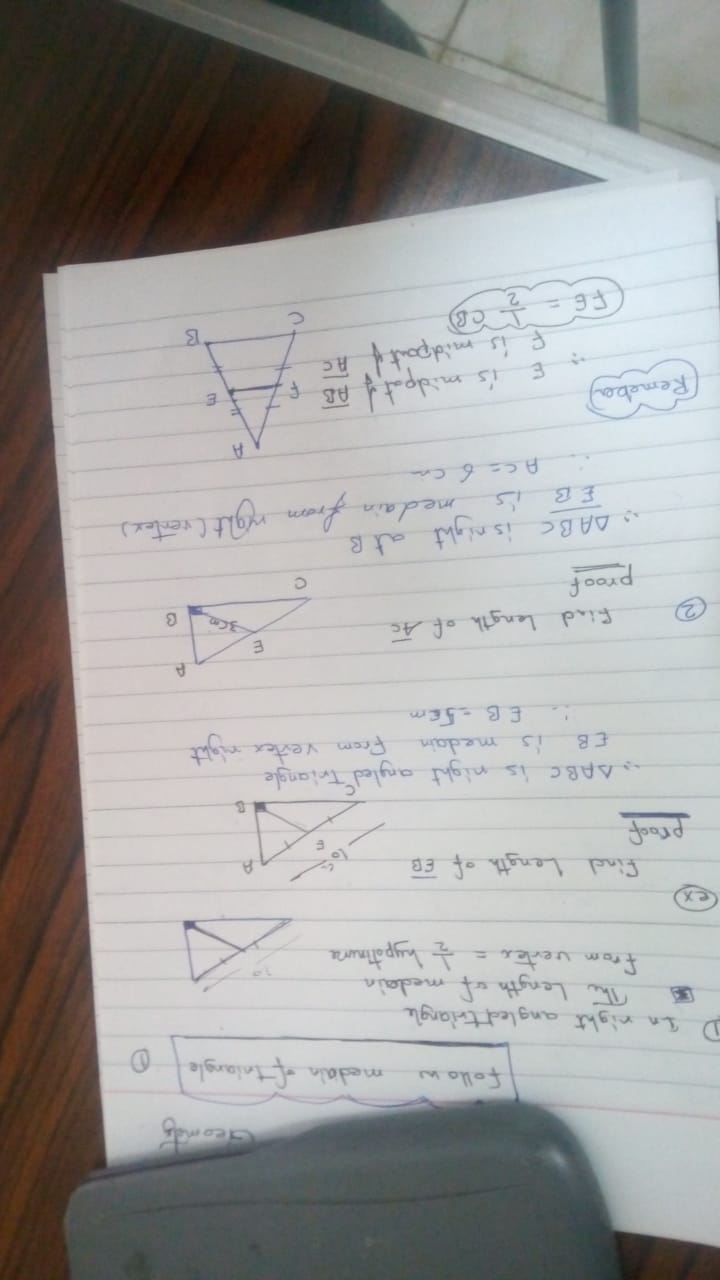 Geometry
Follow medain of triangle ①
① In right angled triangle
The Length of medain
from vertex = 1/2 hypotnuse
10
ex Find Length of EB
proof
A
E
10
B
C
∵ △ABC is right angled triangle
EB is medain from vertex right
∴ EB = 5cm
② Find Length of AC
proof
A
E
3cm
B
C
∵ △ABC is right at B
EB is medain from right (vertex)
∴ AC = 6 cm
Remeber
A
F
E
C
B
∵ E is midpot of AB
F is midpoat of AC
FE = 1/2 CB